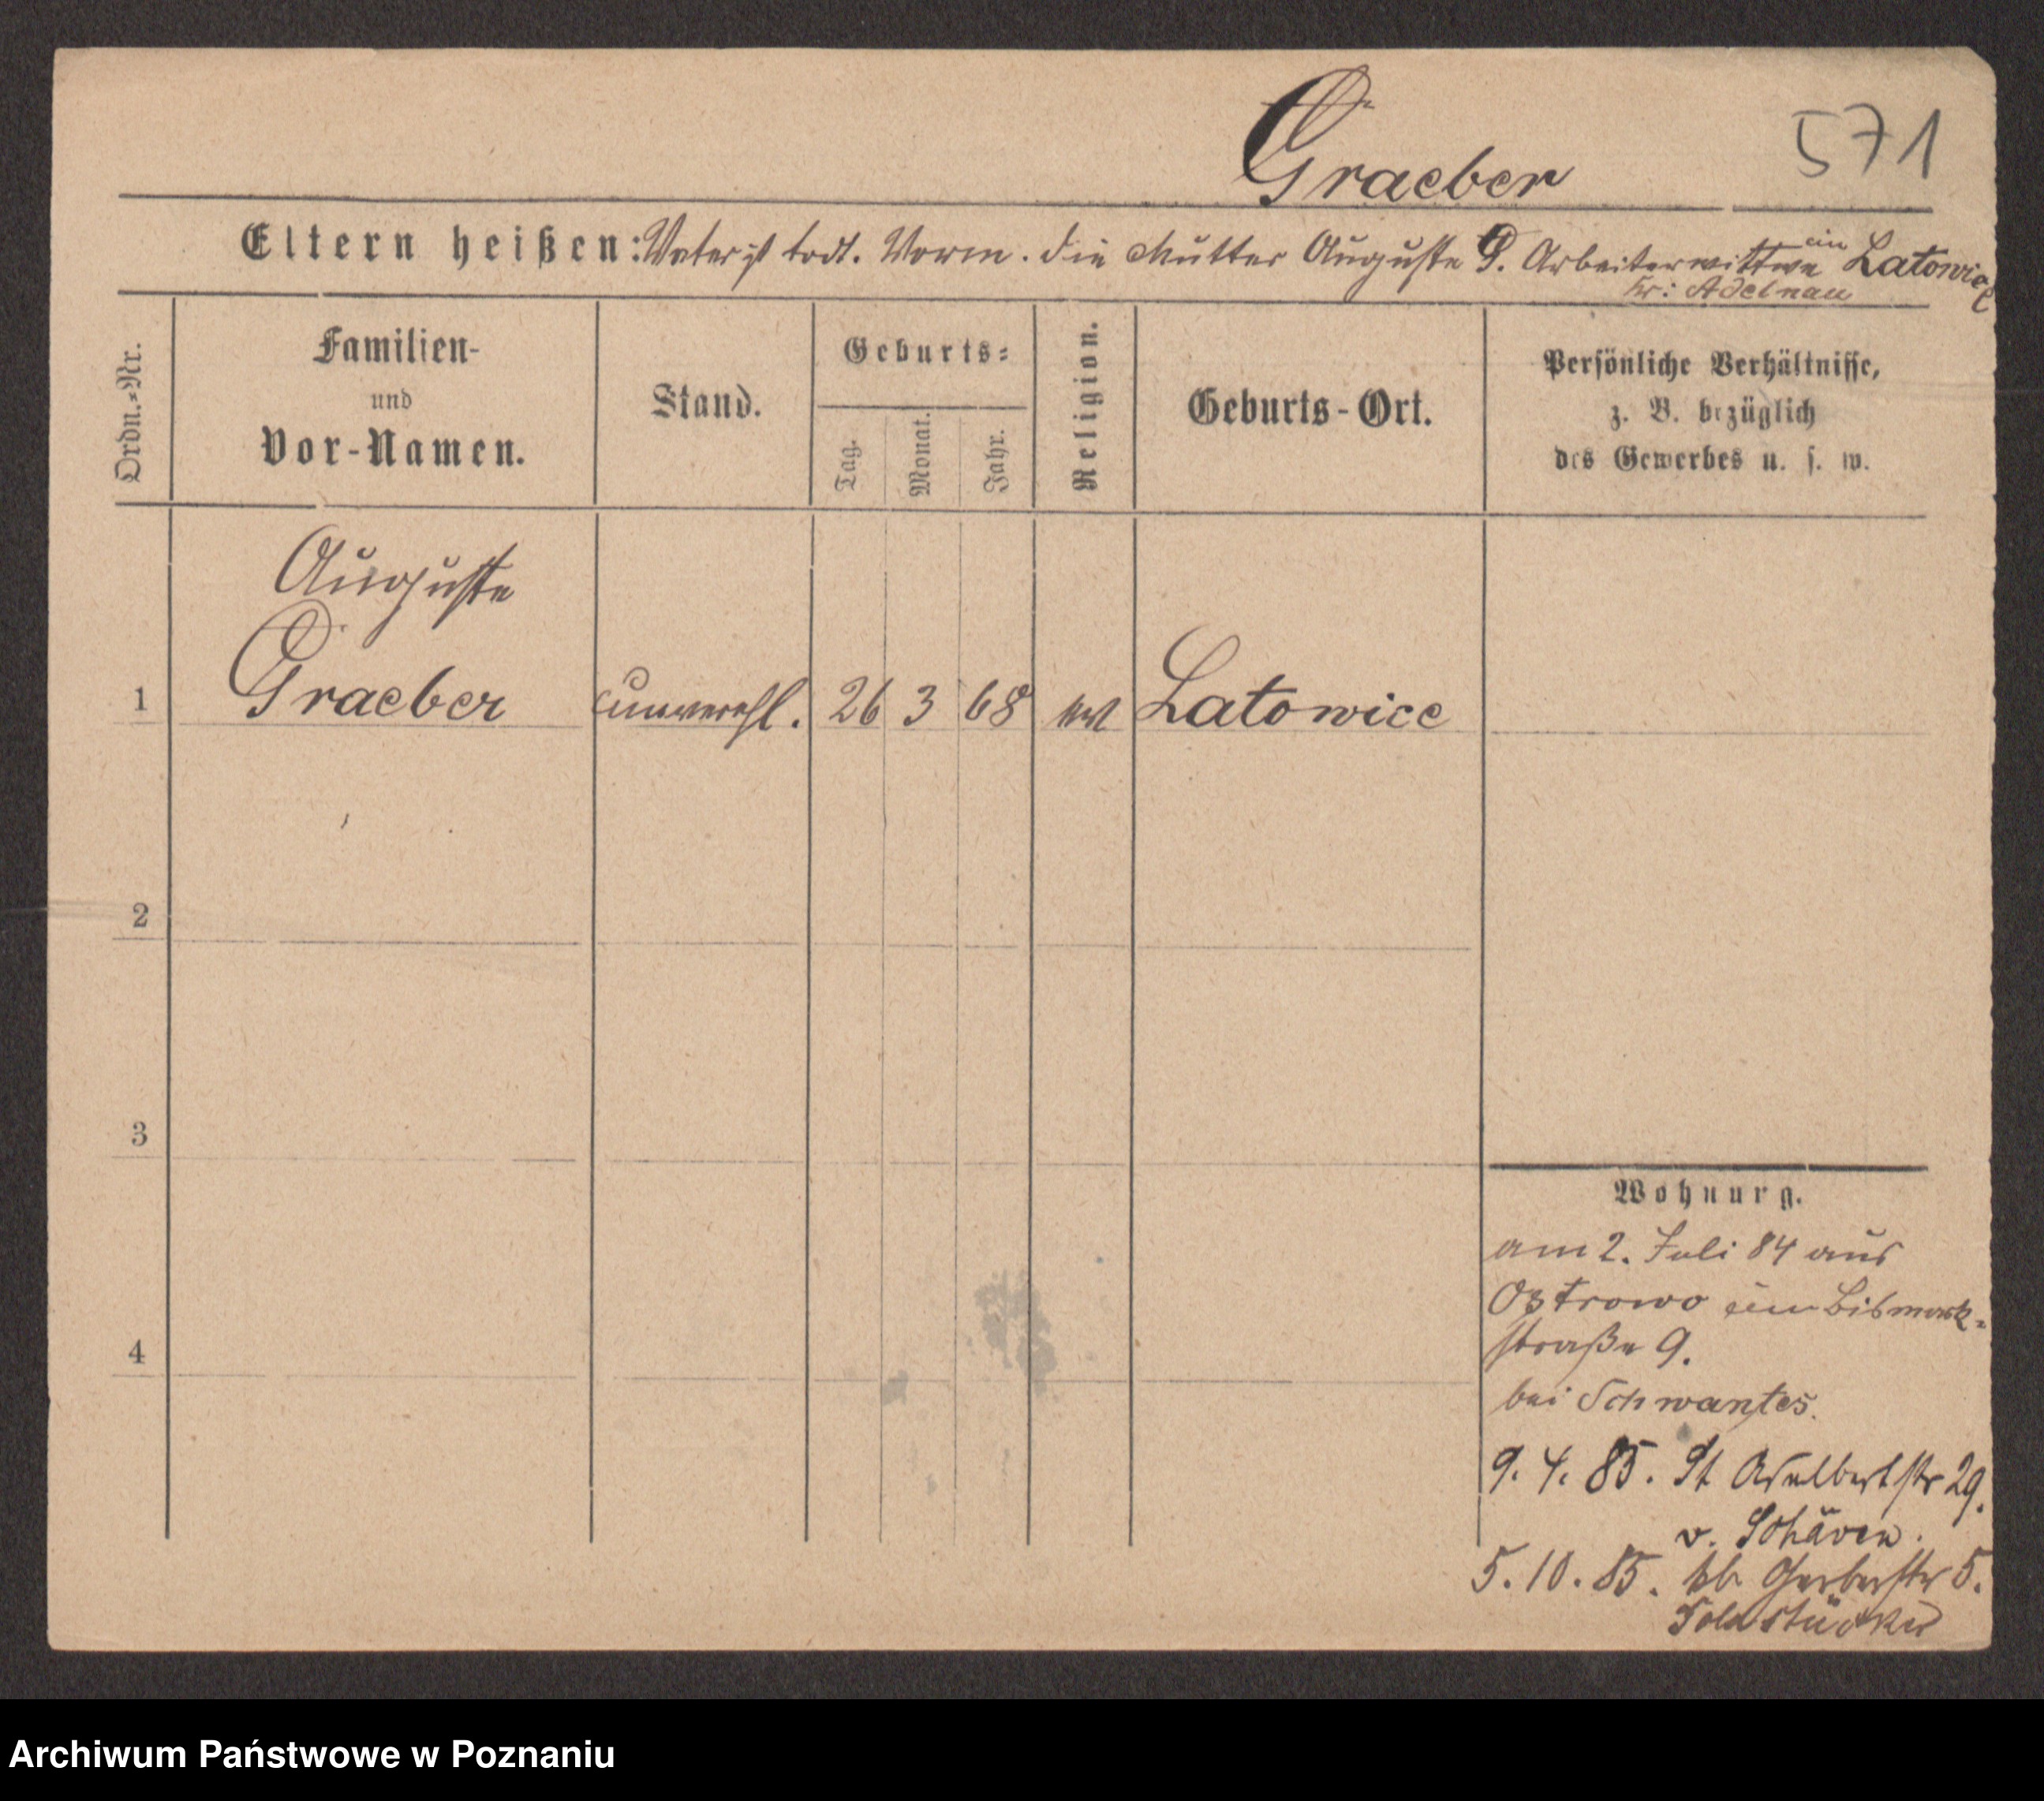 Graeber
571
Eltern heißen: Vater ist todt. Vorm. die Mutter Auguste G. Arbeiterwittwe in Latowice
Kr: Adelnau
Ordn.-Nr.
Familien- und Vor-Namen.
Stand.
Geburts-
Tag.
Monat.
Jahr.
Religion.
Geburts-Ort.
Persönliche Verhältnisse,
z. B. bezüglich
des Gewerbes u. s. w.
Auguste
1 Graeber unverehl. 26 3 68 Latowice
2
3
4
Wohnung.
am 2. Juli 84 aus
Ostrowo Bismark-
straße 9.
bei Schwantes.
9. 4. 85. St Adalbertstr 29.
v.
5. 10. 85. Gerberstr 5.
Archiwum Państwowe w Poznaniu